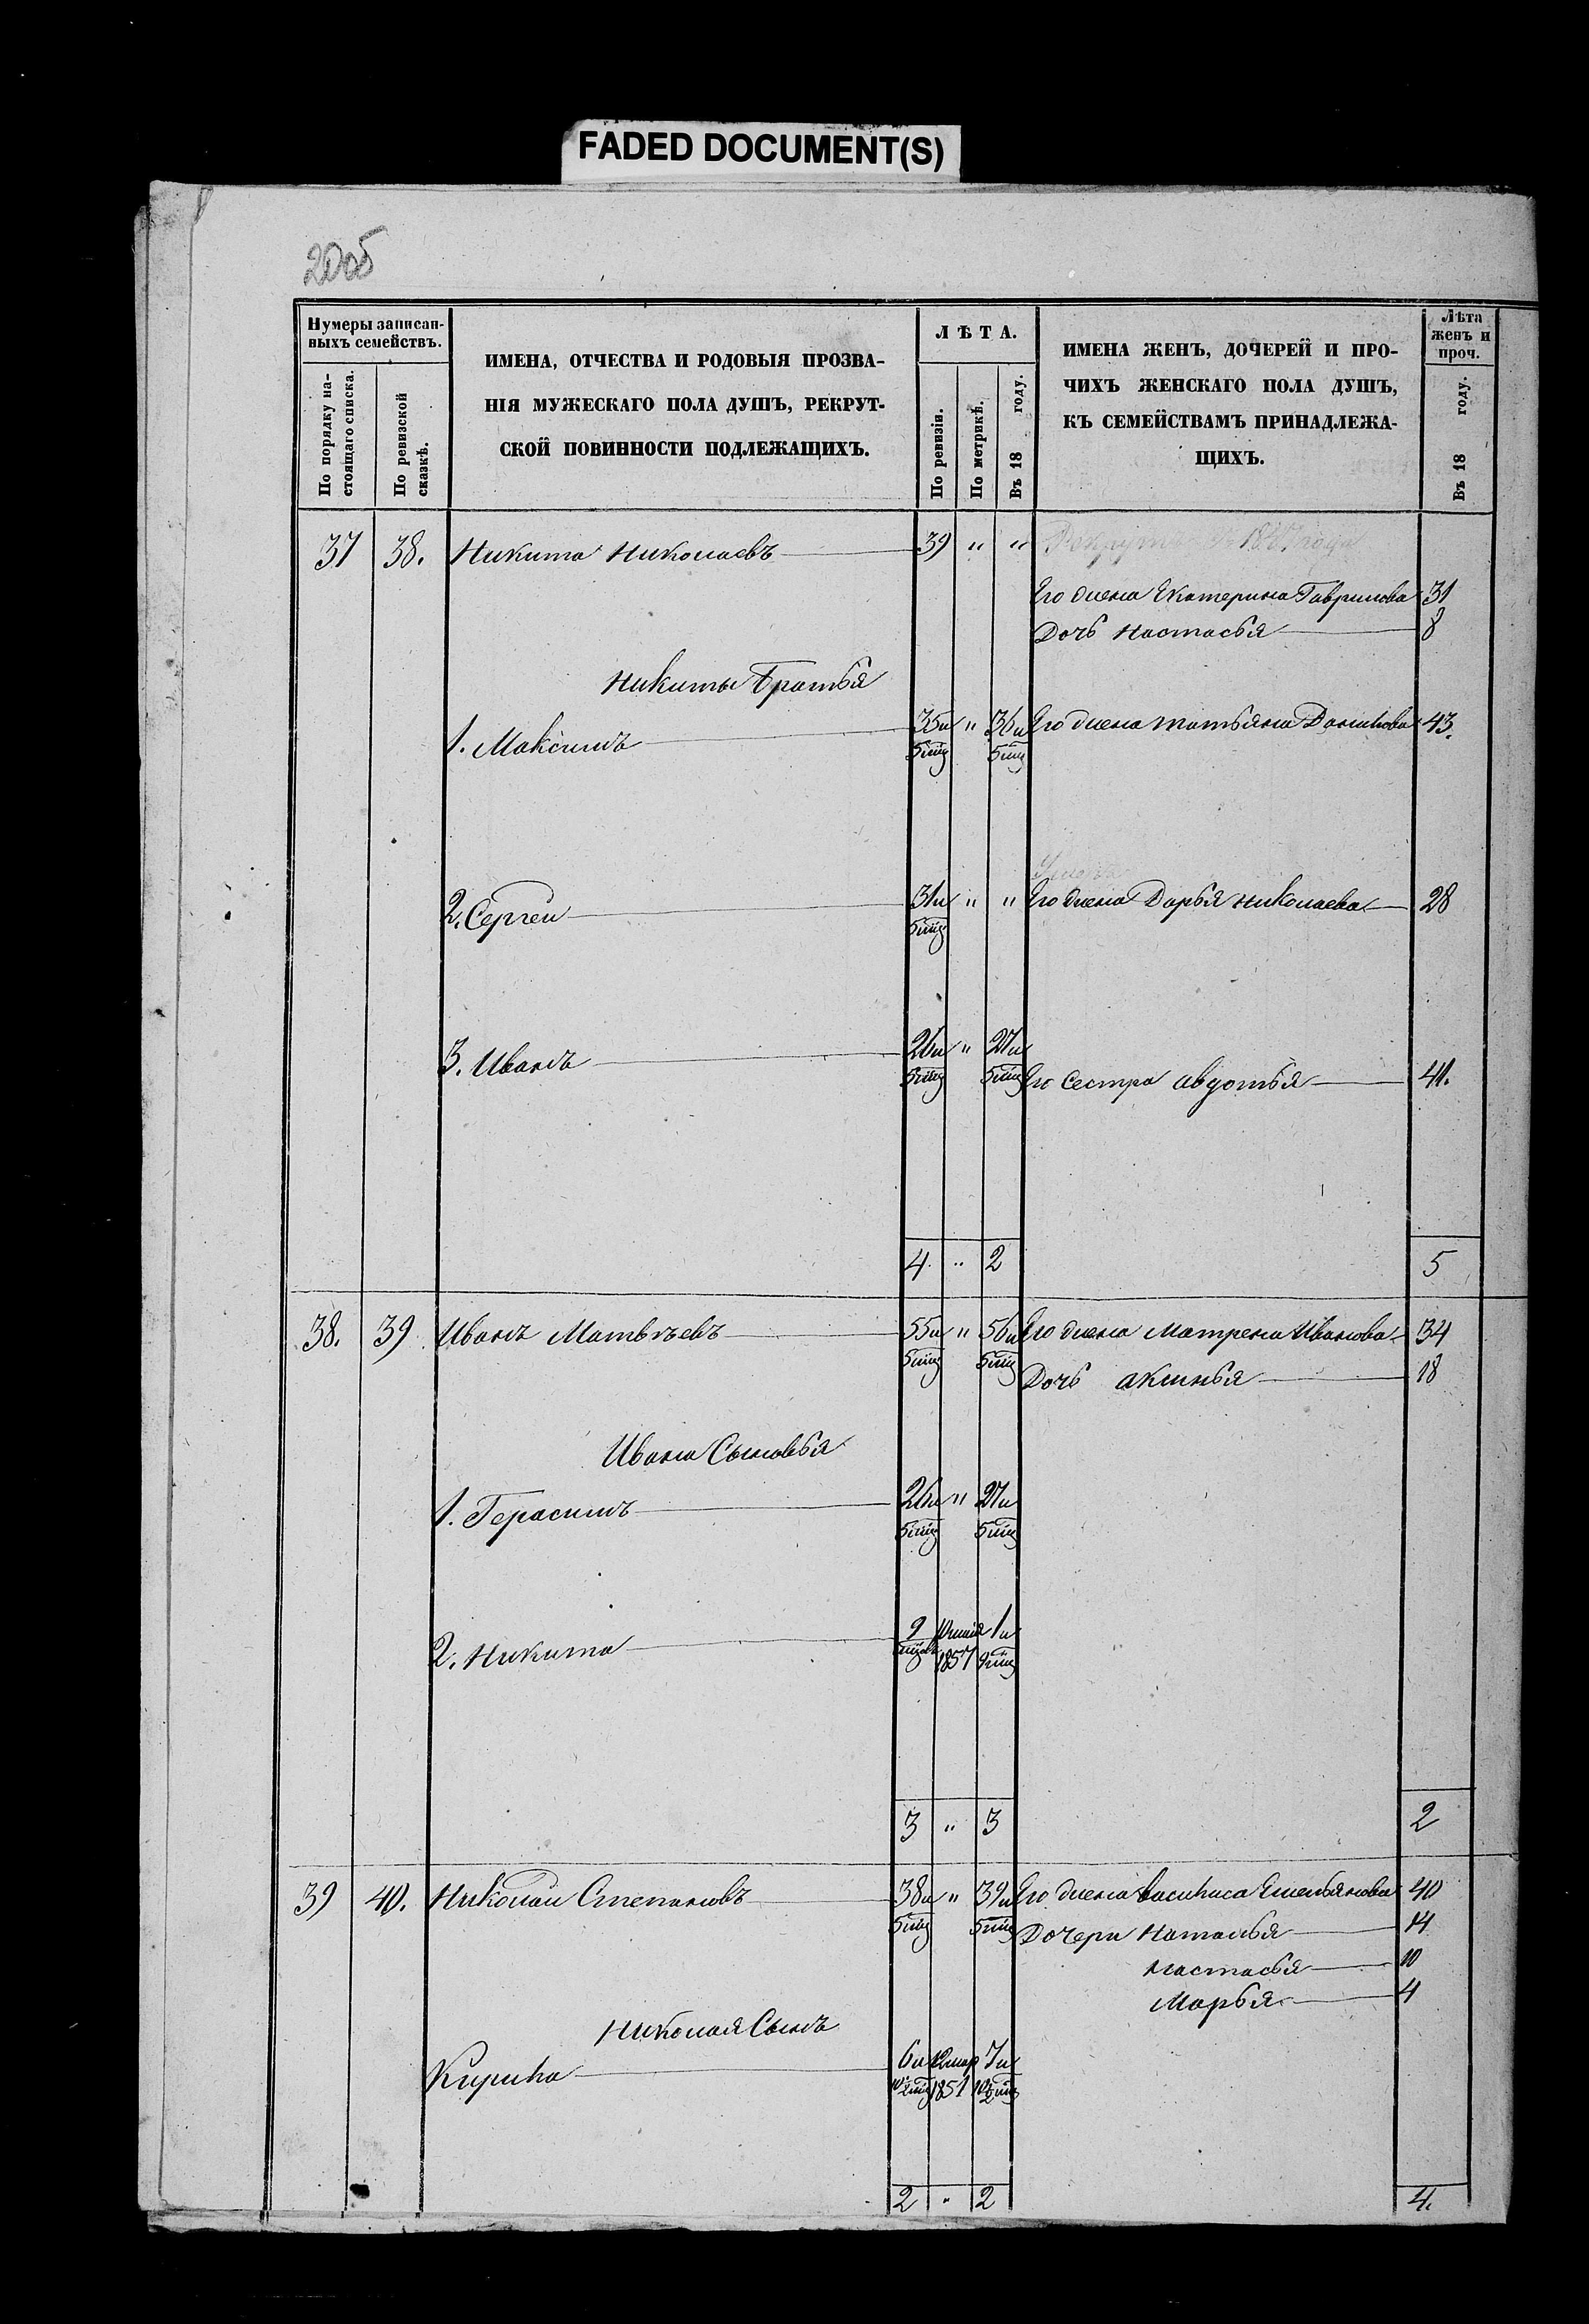 FADED DOCUMENT(S)
20об
Нумеры записан-
ныхъ семействъ.
По порядку на-
стоящаго списка.
По ревизской
сказкѣ.
ИМЕНА, ОТЧЕСТВА И РОДОВЫЯ ПРОЗВА-
НІЯ МУЖЕСКАГО ПОЛА ДУШЪ, РЕКРУТ-
СКОЙ ПОВИННОСТИ ПОДЛЕЖАЩИХЪ.
ЛѢТА.
По ревизіи.
По метрикѣ.
Въ 18 году.
ИМЕНА ЖЕНЪ, ДОЧЕРЕЙ И ПРО-
ЧИХЪ ЖЕНСКАГО ПОЛА ДУШЪ,
КЪ СЕМЕЙСТВАМЪ ПРИНАДЛЕЖА-
ЩИХЪ.
Лѣта
женъ и
проч.
Въ 18 году.
37 38. Никита Николаевъ 39 " " года
Его жена Екатерина Гаврилова 31
Дочь Настасья 8
Никиты Братья
1. Максимъ 35 и " 36 и Его жена Татьяна Данилова 43.
5 мц 5 мц
2. Сергеи 31 и " " Его жена Дарья Николаева 28
5 мц
3. Иванъ 26 и " 27 и
5 мц 5 мц Его Сестра Авдотья 41.
4 " 2 5
38. 39 Иванъ Матвѣевъ 55 и " 56 и Его жена Матрена Иванова 34
5 мц 5 мц Дочь Аксинья 18
Ивана Сыновья
1. Герасимъ 26 и " 27 и
5 мц 5 мц
2. Никита 9 1 и
1857 9 мц
3 " 3 2
39 40. Николай Степановъ 38 и " 39 и Его жена Василиса Емельянова 40
5 мц 5 мц Дочери Наталья 14
Настасья 10
Марья 4
Николая Сынъ
Кирила 6 и 12 мар 7 и
1851
2 " 2 4.